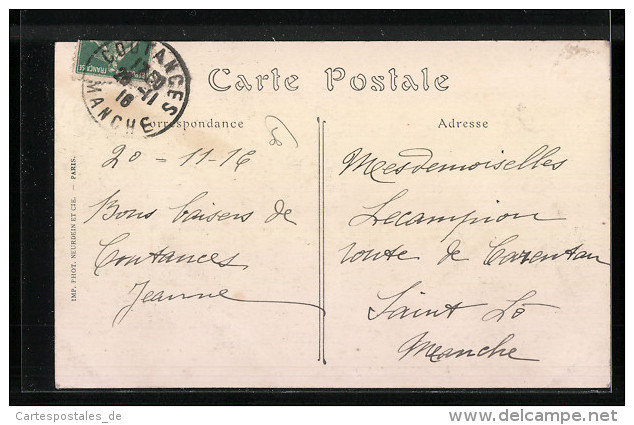 COUTANCES
MANCHE
Carte Postale
Correspondance
Adresse
20 - 11 - 16
Bons baisers de
Coutances
Jeanne
Mesdemoiselles
Lecampion
route de Carentan
Saint Lô
Manche
IMP. PHOT. NEURDEIN ET CIE. — PARIS.
Cartespostales_de
www.delcampe.net